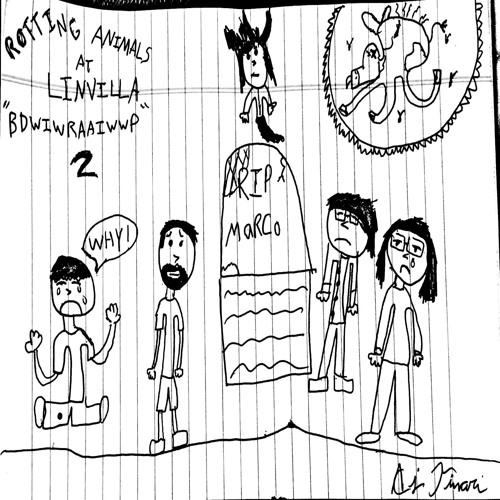 ROTTING ANIMALS
AT
LINVILLA
"BDWIWRAAIWWP"
2
RIP
MaRCo
WHY!